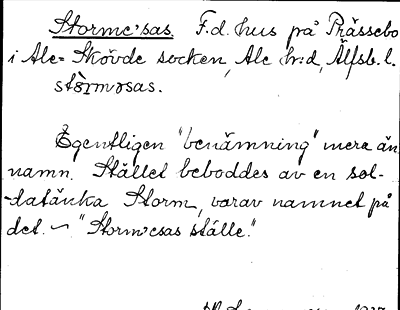 Storme'sas. F.d. hus på Prässebo
i Ale-Skövde socken, Ale hrd, Älfsb. l.
stòrməsas.
Egentligen "benämning" mera än
namn. Stället beboddes av en sol-
-datänka Storm, varav namnet på
det. ~ "Storm'esas ställe."